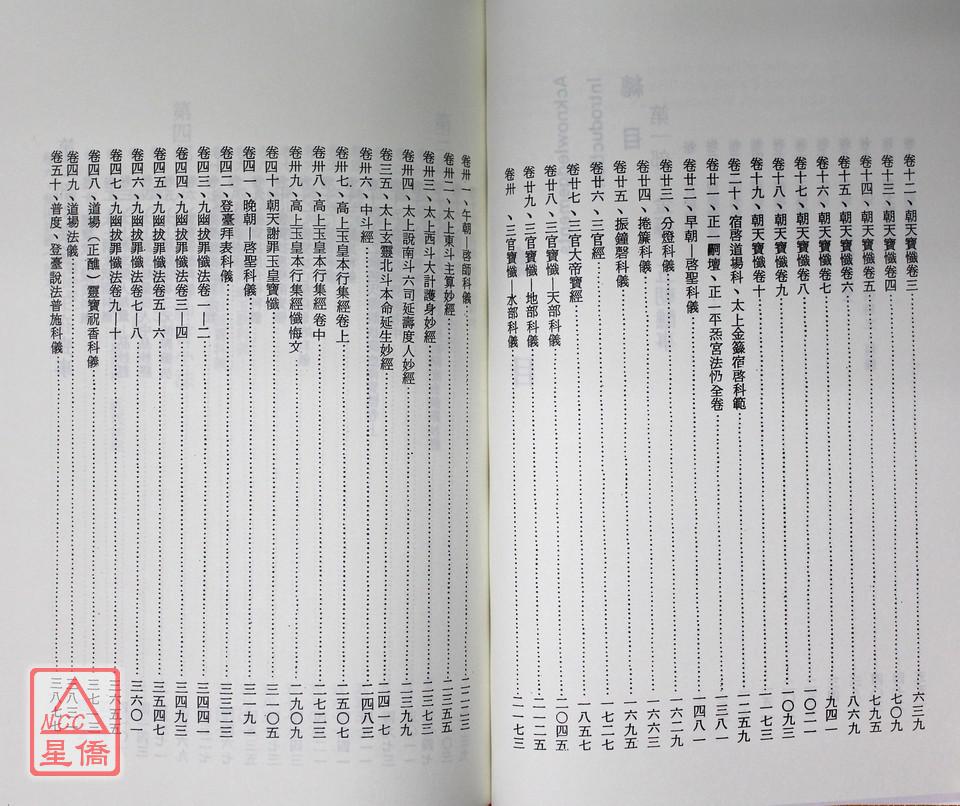 卷十二、朝天寶懺卷三……六三九
卷十三、朝天寶懺卷四……七〇九
卷十四、朝天寶懺卷五……七九五
卷十五、朝天寶懺卷六……八六九
卷十六、朝天寶懺卷七……九四一
卷十七、朝天寶懺卷八……一〇二一
卷十八、朝天寶懺卷九……一〇九三
卷十九、朝天寶懺卷十……一一七三
卷二十、宿啓道場科、太上金籙宿啓科範……一二五九
卷廿一、正一嗣壇、正一平炁宮法仍全卷……一三八一
卷廿二、早朝—啓聖科儀……一四八一
卷廿三、分燈科儀……一六二九
卷廿四、捲簾科儀……一六六三
卷廿五、振鐘磬科儀……一六九五
卷廿六、三官經……一七二七
卷廿七、三官大帝寶經……一八五七
卷廿八、三官寶懺—天部科儀……二〇四五
卷廿九、三官寶懺—地部科儀……二一二五
卷卅、三官寶懺—水部科儀……二一七三
卷卅一、午朝—啓師科儀……二二二三
卷卅二、太上東斗主算妙經……二三五五
卷卅三、太上西斗大計護身妙經……二三七三
卷卅四、太上說南斗六司延壽度人妙經……二三九九
卷三五、太上玄靈北斗本命延生妙經……二四一七
卷卅六、中斗經……二四八三
卷卅七、高上玉皇本行集經卷上……二五〇七
卷卅八、高上玉皇本行集經卷中……二七二三
卷卅九、高上玉皇本行集經懺悔文……二九〇九
卷四十、朝天謝罪玉皇寶懺……三一〇五
卷四一、晚朝—啓聖科儀……三一九一
卷四二、登臺拜表科儀……三三二三
卷四三、九幽拔罪懺法卷一—二……三四四一
卷四四、九幽拔罪懺法卷三—四……三四九三
卷四五、九幽拔罪懺法卷五—六……三五四七
卷四六、九幽拔罪懺法卷七—八……三六〇一
卷四七、九幽拔罪懺法卷九—十……三六五五
卷四八、道場（正醮）靈寶祝香科儀……三七一三
卷四九、道場法儀……
卷五十、普度、登臺說法普施科儀……
NCC
星僑